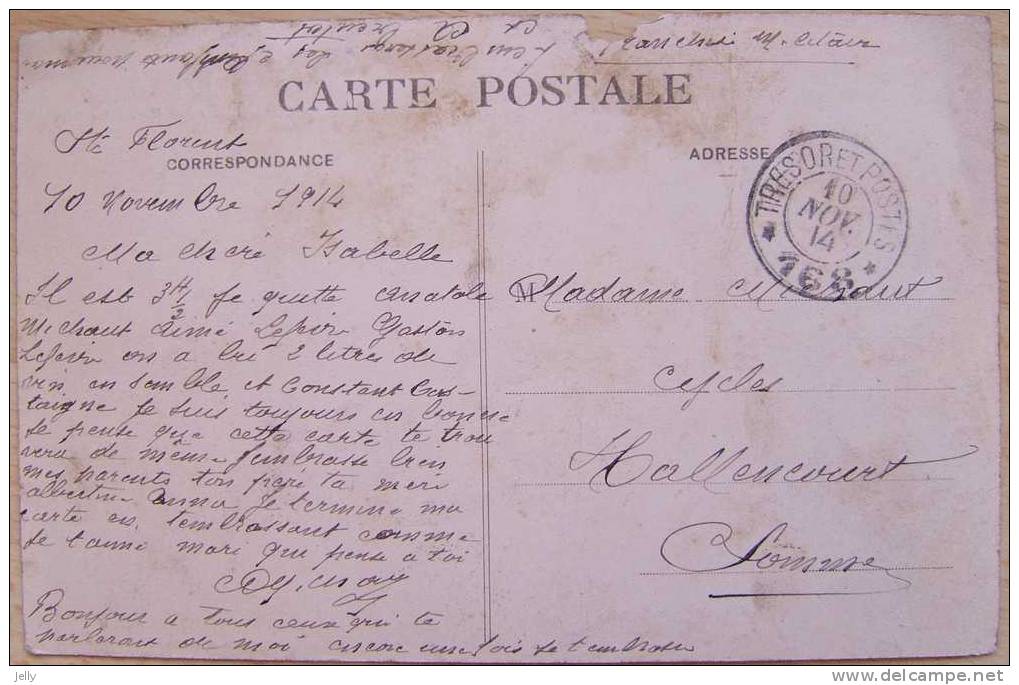 Franchise Militaire
CARTE POSTALE
Ste Florent
CORRESPONDANCE
ADRESSE
10 Novembre 1914
TRESOR ET POSTES
10
NOV.
14
* 168 *
Ma cheri Isabelle
Il est 3H 1/2 je quitte Anatole
Michaut Aimé Lefeivr Gaston
on a bu 2 litres de
vin ensemble et Constant Cos-
taigne Je suis toujours en bonne
Je pense que cette carte te trou
vera de même Jembrasse bien
mes parents ton père ta mere
albertine anna Je termine ma
carte en tembrassant comme
Je taime mari qui pense a toi
Bonjour a tous ceux qui te
parlerons de moi encore une fois je tembrasse
M Madame
Cycles
Hallencourt
Somme
jelly
delcampe.net